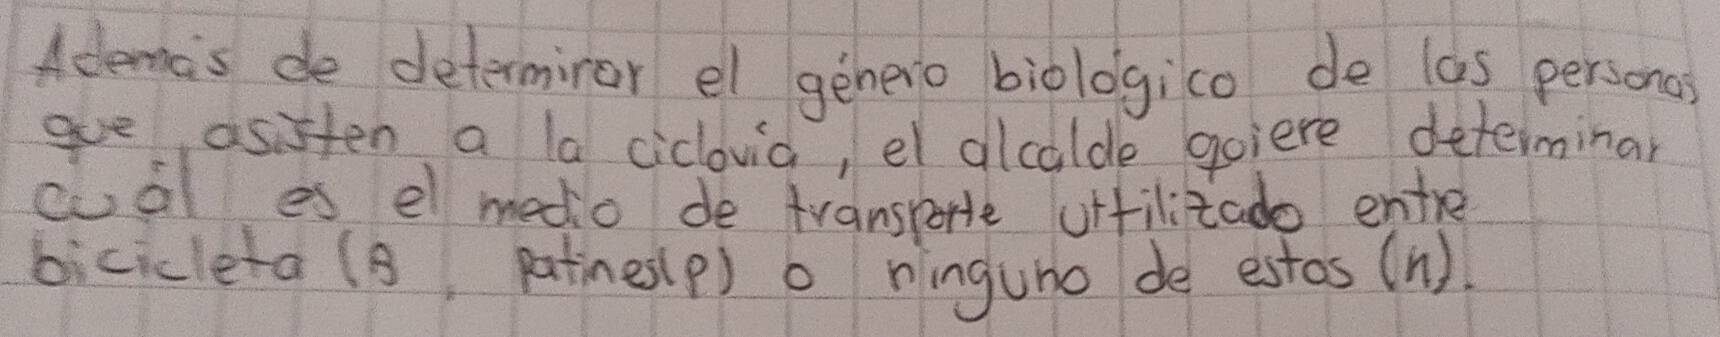 Además de determinar el género biológico de las personas
que asisten a la ciclovía, el alcalde quiere determinar
cuál es el medio de transporte urtilizado entre
bicicleta (B, patines(p) o ninguno de estos (n).